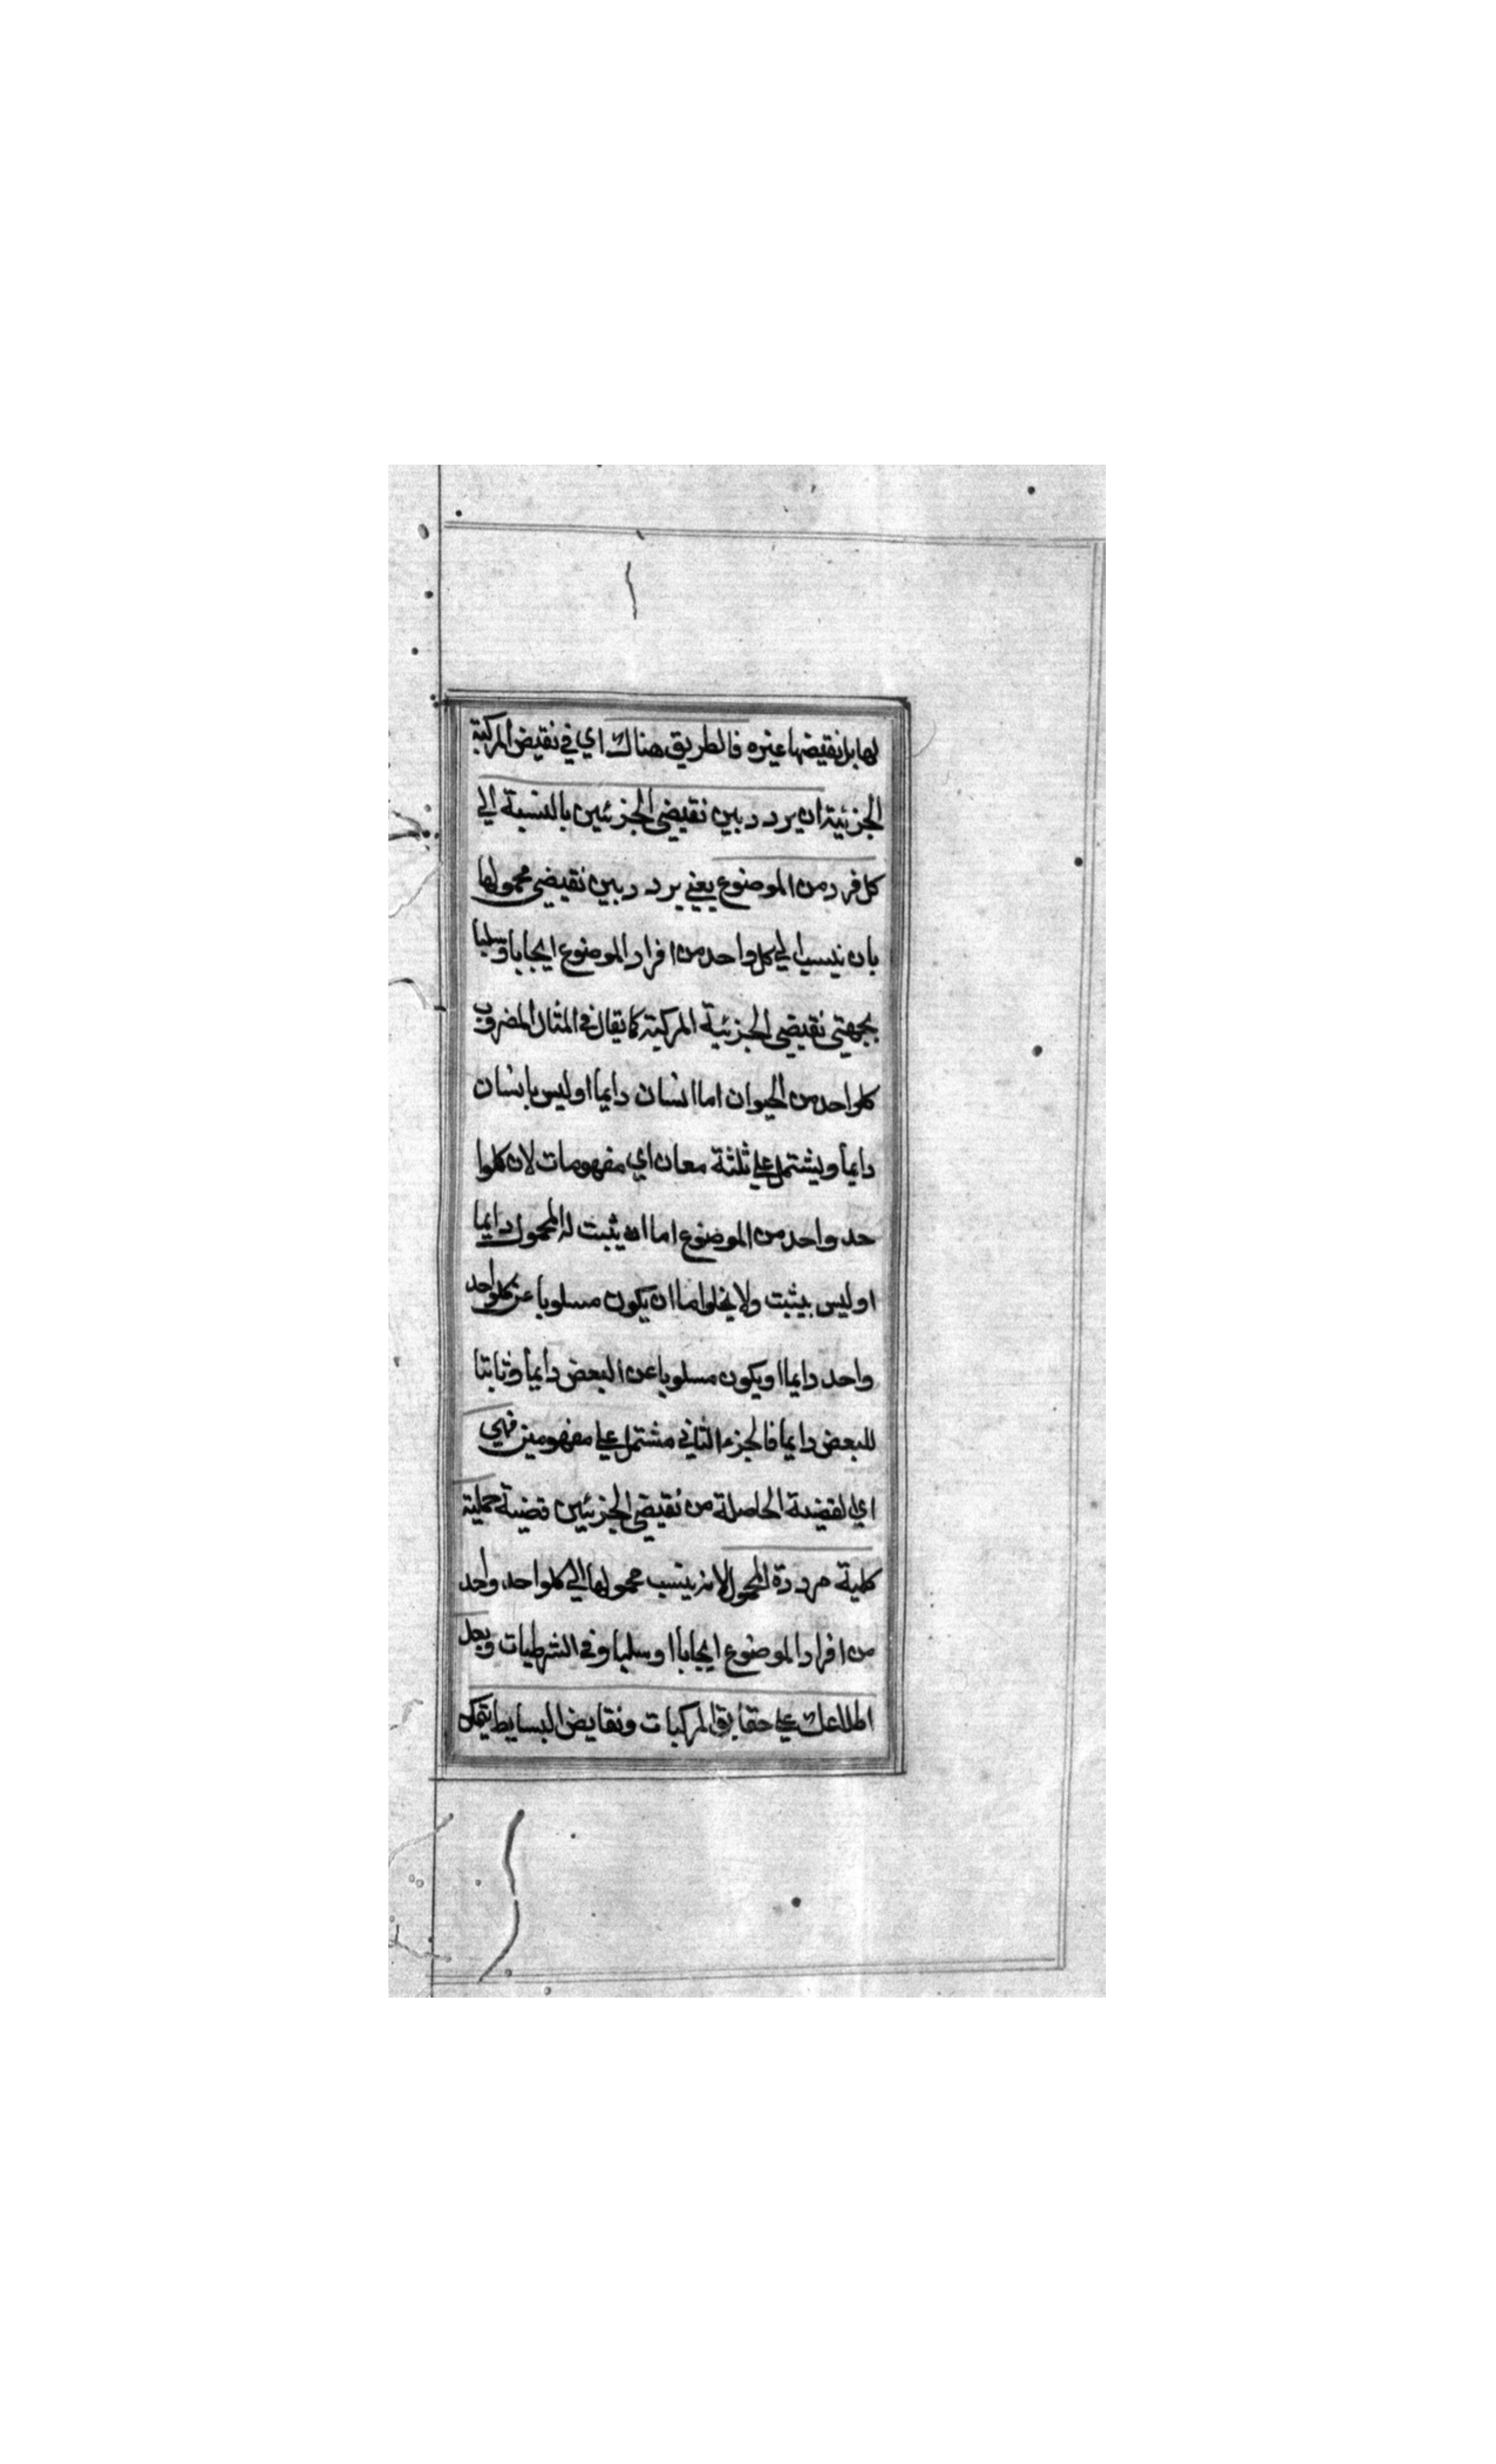 لها بل نقيضها غيره فالطريق هناك اي في نقيض المركبة
الجزئية ان يردد بين نقيضي الجزئين بالنسبة الي
كل فرد من الموضوع يعني يردد بين نقيضي محمولها
بان ينسب الي كل واحد من افراد الموضوع ايجابا وسلبا
بجهتي نقيضي الجزئية المركبة كما يقال في المثال المضروب
كلواحد من الحيوان اما انسان دايما او ليس بانسان
دايما ويشتمل علي ثلثة معان اي مفهومات لان كلوا
حد واحد من الموضوع اما ان يثبت له المحمول دايما
او ليس بيثبت ولا يخلوا ما ان يكون مسلوبا عن كلواحد
واحد دايما او يكون مسلوبا عن البعض دايما وثابتا
للبعض دايما فالجزء الثاني مشتمل علي مفهومين فهي
اي القضية الحاصلة من نقيضي الجزئين قضية حملية
كلية مرددة المحمول لانه ينسب محمولها الي كلواحد واحد
من افراد الموضوع ايجابا او سلبا وفي الشرطيات وبعد
اطلاعك علي حقايق المركبات ونقايض البسايط يتمكن